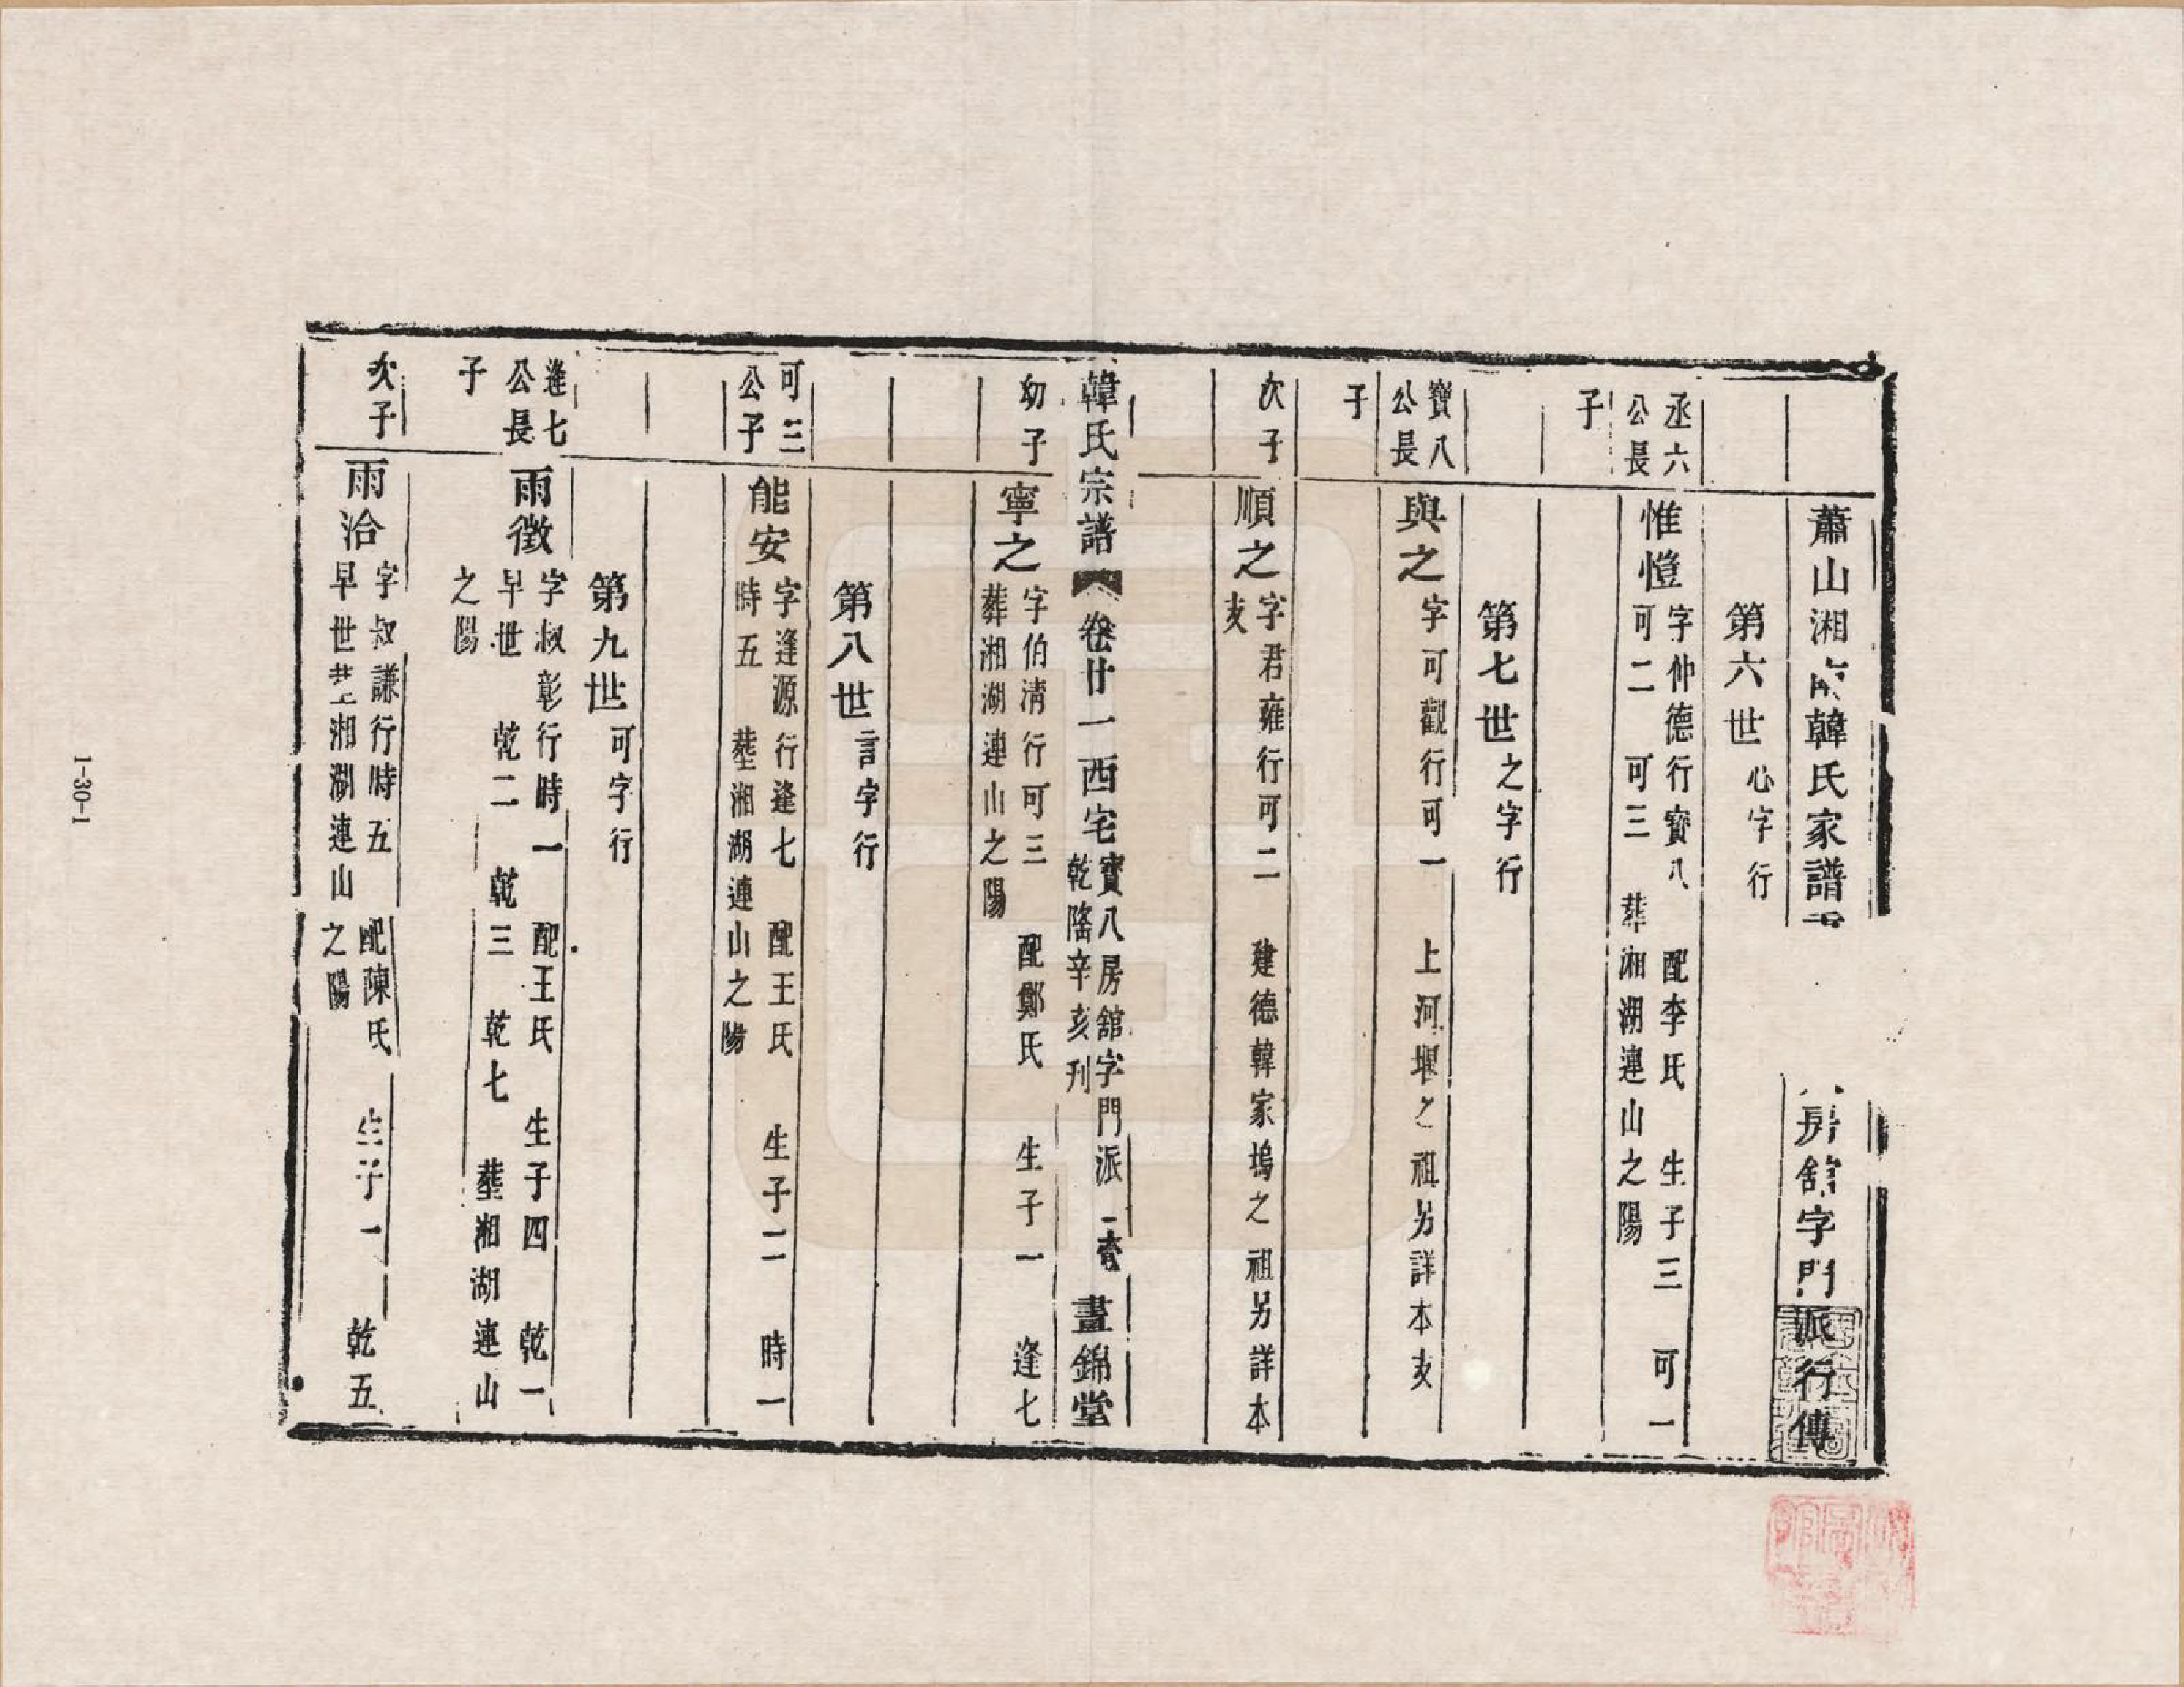 蕭山湘南韓氏家譜
房舘字門派行傳
第六世心字行
丞六公長子
惟愷
字仲德行寶八 配李氏 生子三 可一
可二 可三 葬湘湖連山之陽
第七世之字行
寶八公長子
與之
字可觀行可一 上河堰之祖另詳本支
次子
順之
字君雍行可二 建德韓家塢之祖另詳本
支
韓氏宗譜 卷廿一 西宅 寶八房舘字門派 畫錦堂
乾隆辛亥刊
幼子
寧之
字伯清行可三 配鄭氏 生子一 逢七
葬湘湖連山之陽
第八世言字行
可三公子
能安
字逢源行逢七 配王氏 生子二 時一
時五 塟湘湖連山之陽
第九世可字行
逢七公長子
雨徵
字叔彰行時一 配王氏 生子四 乾一
早世 乾二 乾三 乾七 塟湘湖連山
之陽
次子
雨洽
字叔謙行時五 配陳氏 生子一 乾五
早世塟湘湖連山之陽
1-30-1